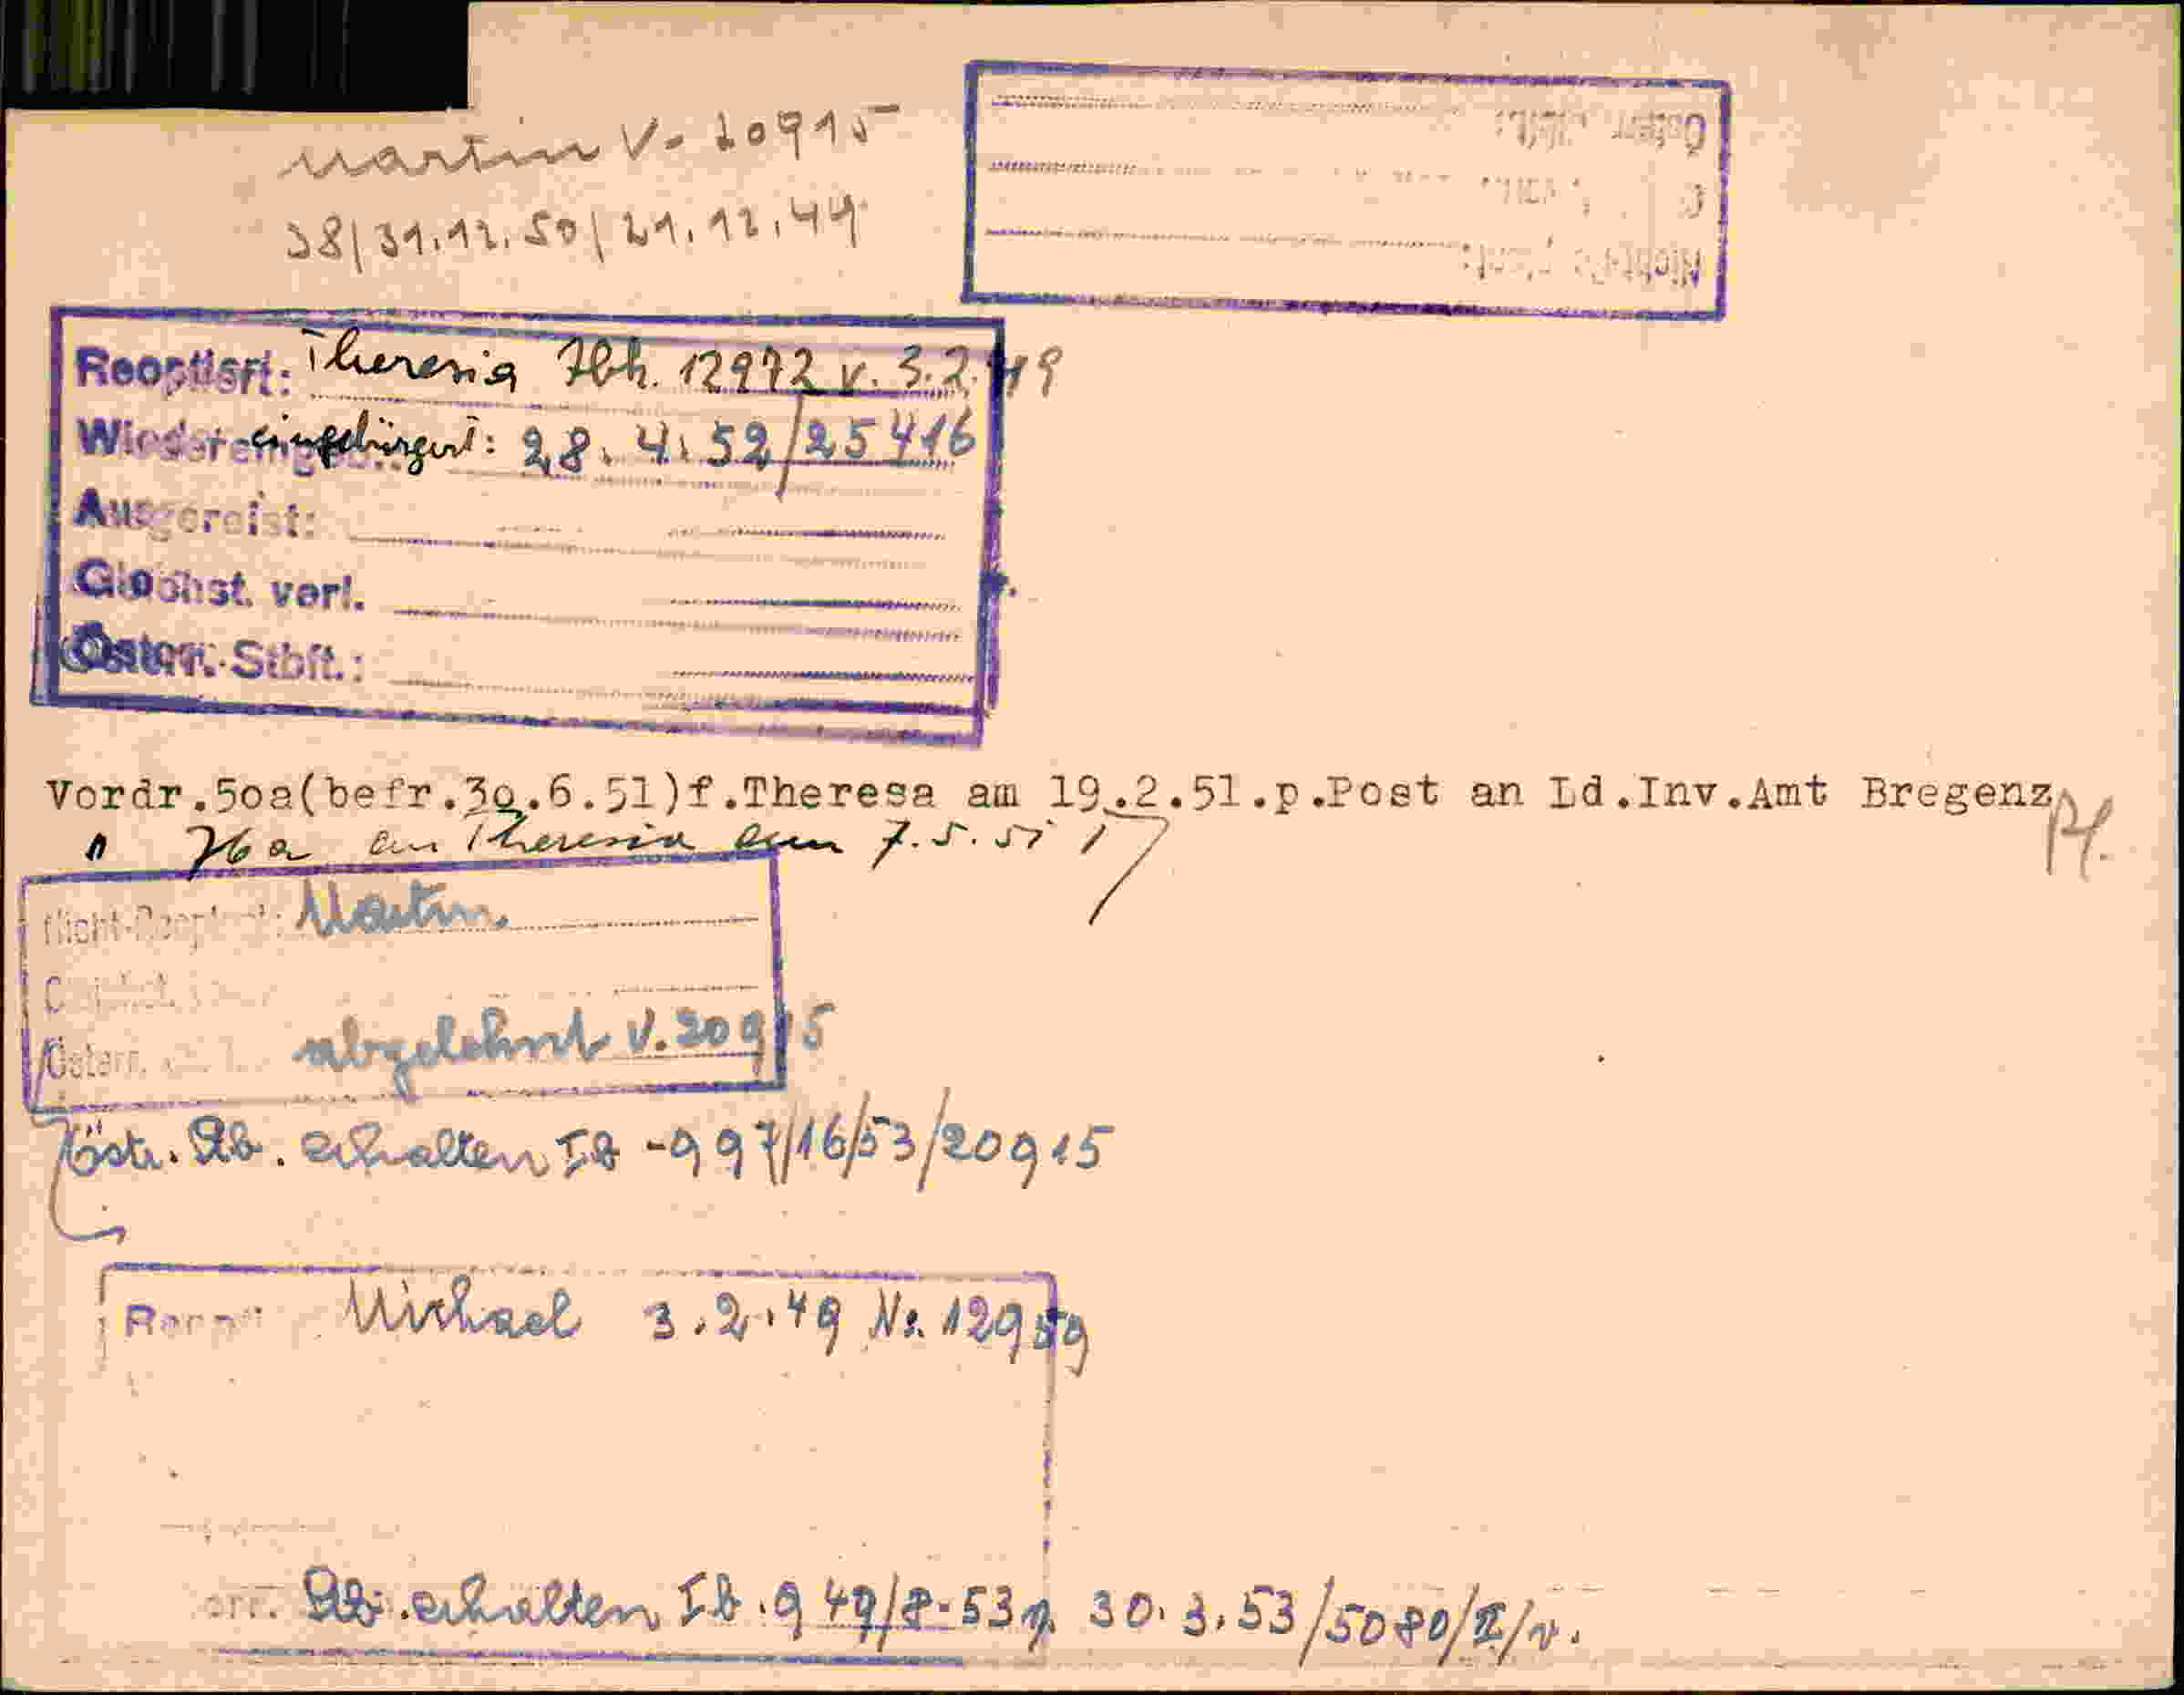 Martin V. 20915
38/31.12.50/21.12.49
Reoptiert: Theresia Hbh. 12972 v. 3.2.49
Wieder-eingebürgert: 28.4.52/25416
Ausgereist:
Gleichst. verl.
Österr. Stbft.:
Vordr.50a(befr.30.6.51)f.Theresa am 19.2.51.p.Post an Ld.Inv.Amt Bregenz
" 76a an Theresia am 7.5.51
Nicht-Reopt Martin
Österr. abgelehnt V.20915
öst. Stb. erhalten Ib -997/16/53/20915
Michael 3.2.49 Nr. 12959
Stb. erhalten Ib.949/8-53 30.3.53/5080/II/v.